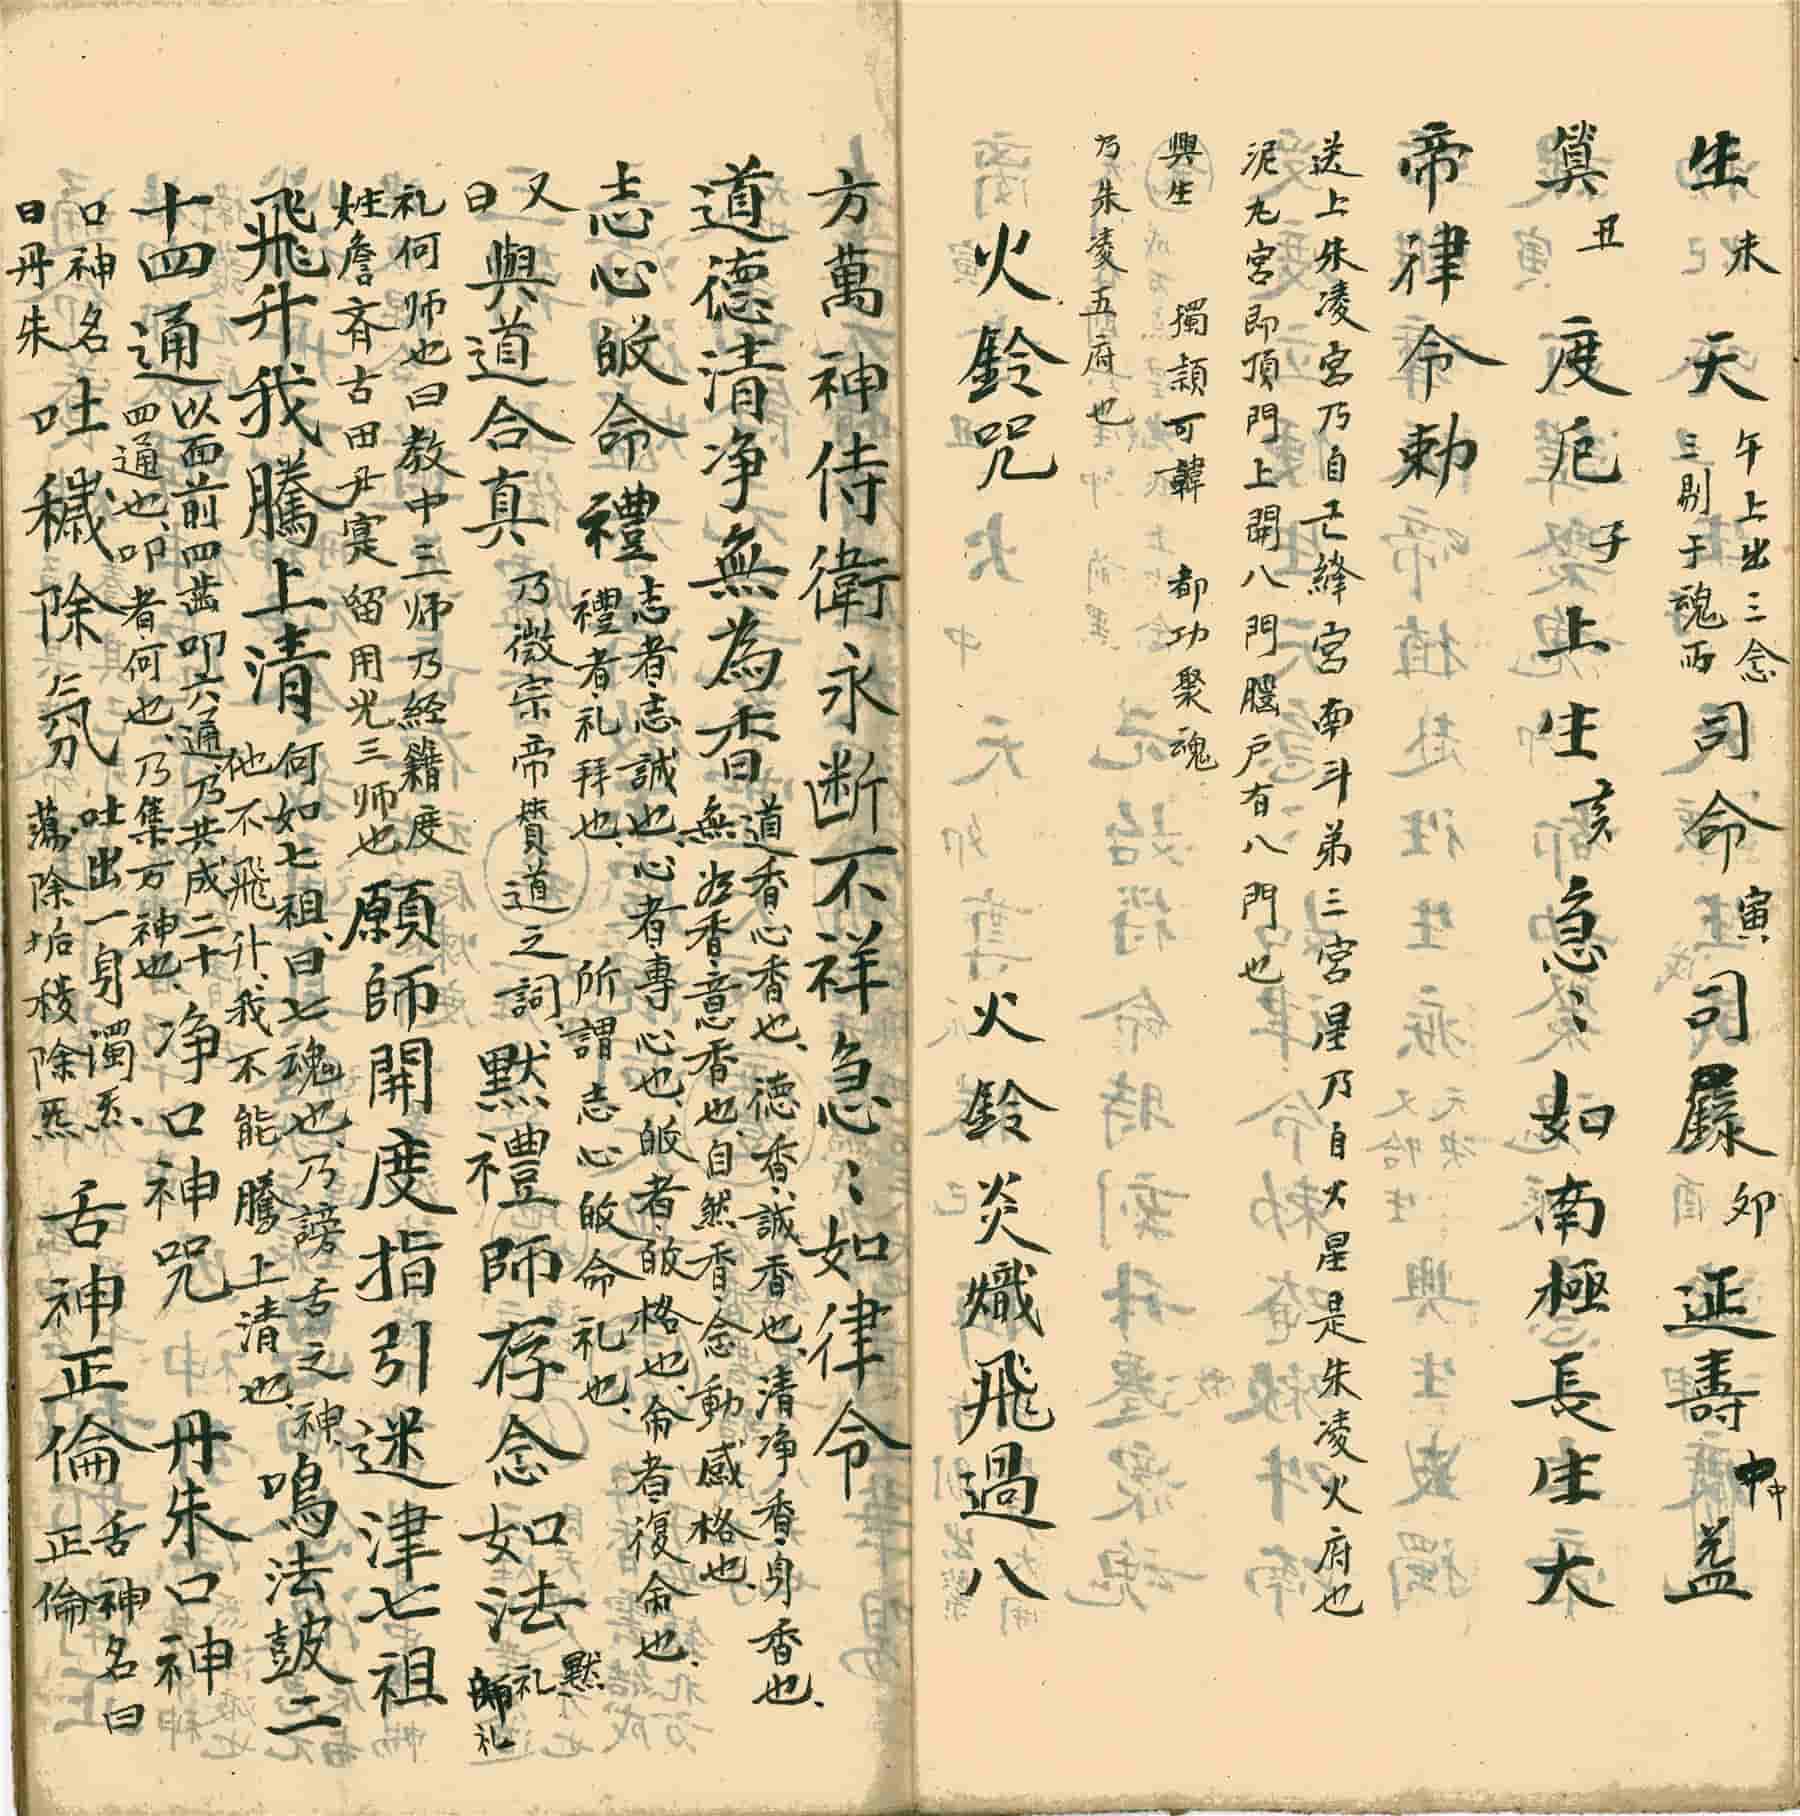 生未天午上出三念三剔于魂而司命寅司祿卯延壽中中益
算丑度厄子上生亥急〻如南極長生大
帝律令勅
送上朱凌宮乃自己絳宮南斗弟三宮星乃自火星是朱凌火府也
泥丸宮即頂門上開八門腦户有八門也
興生 獨頴可韓 都功聚魂
乃朱凌五府也
火鈴咒 火鈴炎熾飛過八
方萬神侍衛永断不祥急〻如律令
道德清净無為香道香心香也、德香誠香也、清净香身香也、無為香意香也、自然香念動感格也、
志心皈命禮志者志誠也、心者專心也、皈者皈格也、命者復命也、禮者礼拜也、所謂志心皈命礼也、
又曰與道合真乃徽宗帝賛道之詞、默禮師存念如法默礼師礼
礼何师也曰教中三师乃經籍度
姓詹斉古田尹寔留用光三师也願師開度指引迷津七祖
飛升我騰上清何如七祖、曰七魂也、乃謗舌之神、他不飛升、我不能騰上清也、鳴法鼓二
十四通以面前四齒叩六通、乃共成二十四通也、叩者何也、乃集万神也、净口神咒丹朱口神
口神名曰丹朱吐穢除氛吐出一身濁炁、蕩除垢穢除炁舌神正倫舌神名曰正倫